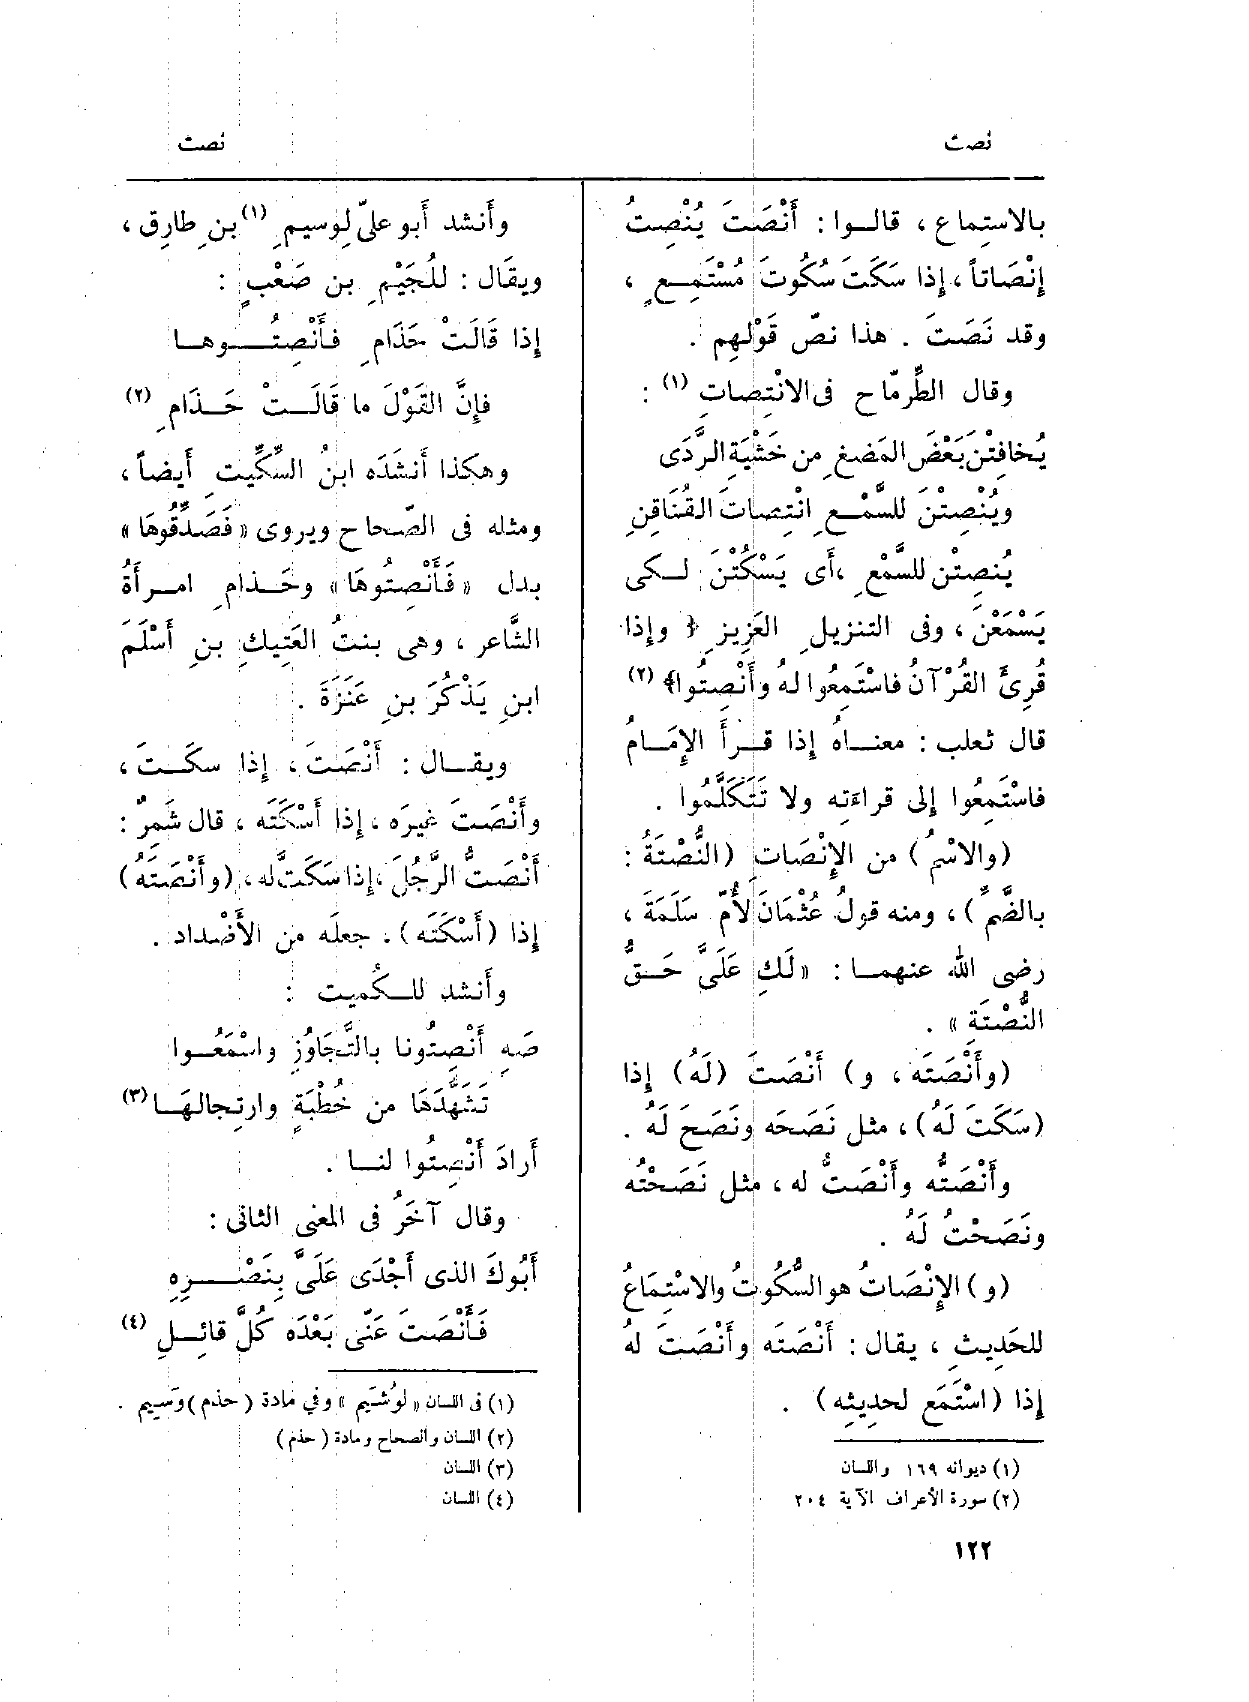 نصت
نصت
بالاستِماع ، قالـوا : أَنْصَتَ يُنْصِتُ
إِنْصَاتاً ، إذا سَكَتَ سُكُوتَ مُسْتَمِـعٍ ،
وقد نَصَتَ . هذا نصّ قَوْلِهم .
وقال الطِّرمّاح فى الانْتِصاتِ (١) :
يُخافِتْن بَعْضَ المَضغِ من خَشْيَةِ الرَّدَى
ويُنْصِتْنَ للسَّمْـعِ انْتِصاتَ القُناقِنِ
يُنصِتْن للسَّمْعِ ، أَى يَسْكُتْنَ لـكى
يَسْمَعْنَ ، وفى التنزيلِ العَزِيزِ ﴿ وإِذا
قُرِئَ القُرْآنُ فاسْتَمِعُوا لهُ وأَنْصِتُوا﴾ (٢)
قال ثعلب : معنـاهُ إذا قـرأَ الإِمَـامُ
فاسْتَمِعُوا إلى قراءَتِه ولا تَتَكَلَّمُوا .
(والاسْمُ) من الإِنْصَاتِ (النُّصْتَةُ :
بالضَّمِّ) ، ومنه قولُ عُثْمَانَ لأُمّ سَلَمَةَ ،
رضى الله عنهمـا : «لَكِ عَلَىَّ حَـقُّ
النُّصْتَةِ » .
(وأَنْصَتَه ، و) أَنْصَتَ (لَهُ) إذا
(سَكَتَ لَهُ) ، مثل نَصَحَه ونَصَحَ لَهُ .
وأَنْصَتُّه وأَنْصَتُّ له ، مثل نَصَحْتُه
ونَصَحْتُ لَهُ .
(و) الإِنْصَاتُ هو السُّكُوتُ والاسْتِمَاعُ
للحَدِيثِ ، يقال : أَنْصَتَه وأَنْصَتَ لهُ
إذا (اسْتَمَع لحدِيثِه) .
(١) ديوانه ١٦٩ واللسان
(٢) سورة الأعراف الآية ٢٠٤
وأَنشد أَبو علىّ لِوسيمِ (١) بنِ طارِق ،
ويقَال : للُجَيْمِ بن صَعْبٍ :
إذا قَالَتْ حَذَامِ فأَنْصِتُـوهـا
فإِنَّ القَوْلَ ما قَالَـتْ حَـذَامِ (٢)
وهكذا أَنشَدَه ابنُ السِّكِّيتِ أَيضاً ،
ومثله فى الصّحاح ويروى «فَصَدِّقُوهَا»
بدل «فَأَنْصِتُوهَا» وحَـذامِ امـرأَةُ
الشَّاعر ، وهى بنتُ العَتِيكِ بنِ أَسْلَمَ
ابنِ يَذْكُرَ بنِ عَنَزَةَ .
ويقـال : أَنْصَتَ ، إذا سكَـتَ ،
وأَنْصَتَ غيرَه ، إذا أَسْكَتَه ، قال شَمِرٌ :
أَنْصَتُّ الرَّجُلَ ، إذا سَكَتَّ له ، (وأَنْصَتَهُ)
إذا (أَسْكَتَه) . جعلَه من الأَضْداد .
وأَنشد للـكُميت :
صَهٍ أَنْصِتُونا بالتَّجَاوُزِ واسْمَعُـوا
تَشَهُّدَهَا من خُطْبَةٍ وارتجالِهَـا (٣)
أَرادَ أَنْصِتُوا لنـا .
وقال آخَرُ فى المعنى الثانى :
أَبُوكَ الذى أَجْدَى عَلَىَّ بِنَصْـرِهِ
فَأَنْصَتَ عَنِّى بَعْدَه كُلَّ قائِـلِ (٤)
(١) فى اللسان «لوُشَيم» وفي مادة (حذم) وَسِيم .
(٢) اللسان والصحاح ومادة (حذم)
(٣) اللسان
(٤) اللسان
١٢٢